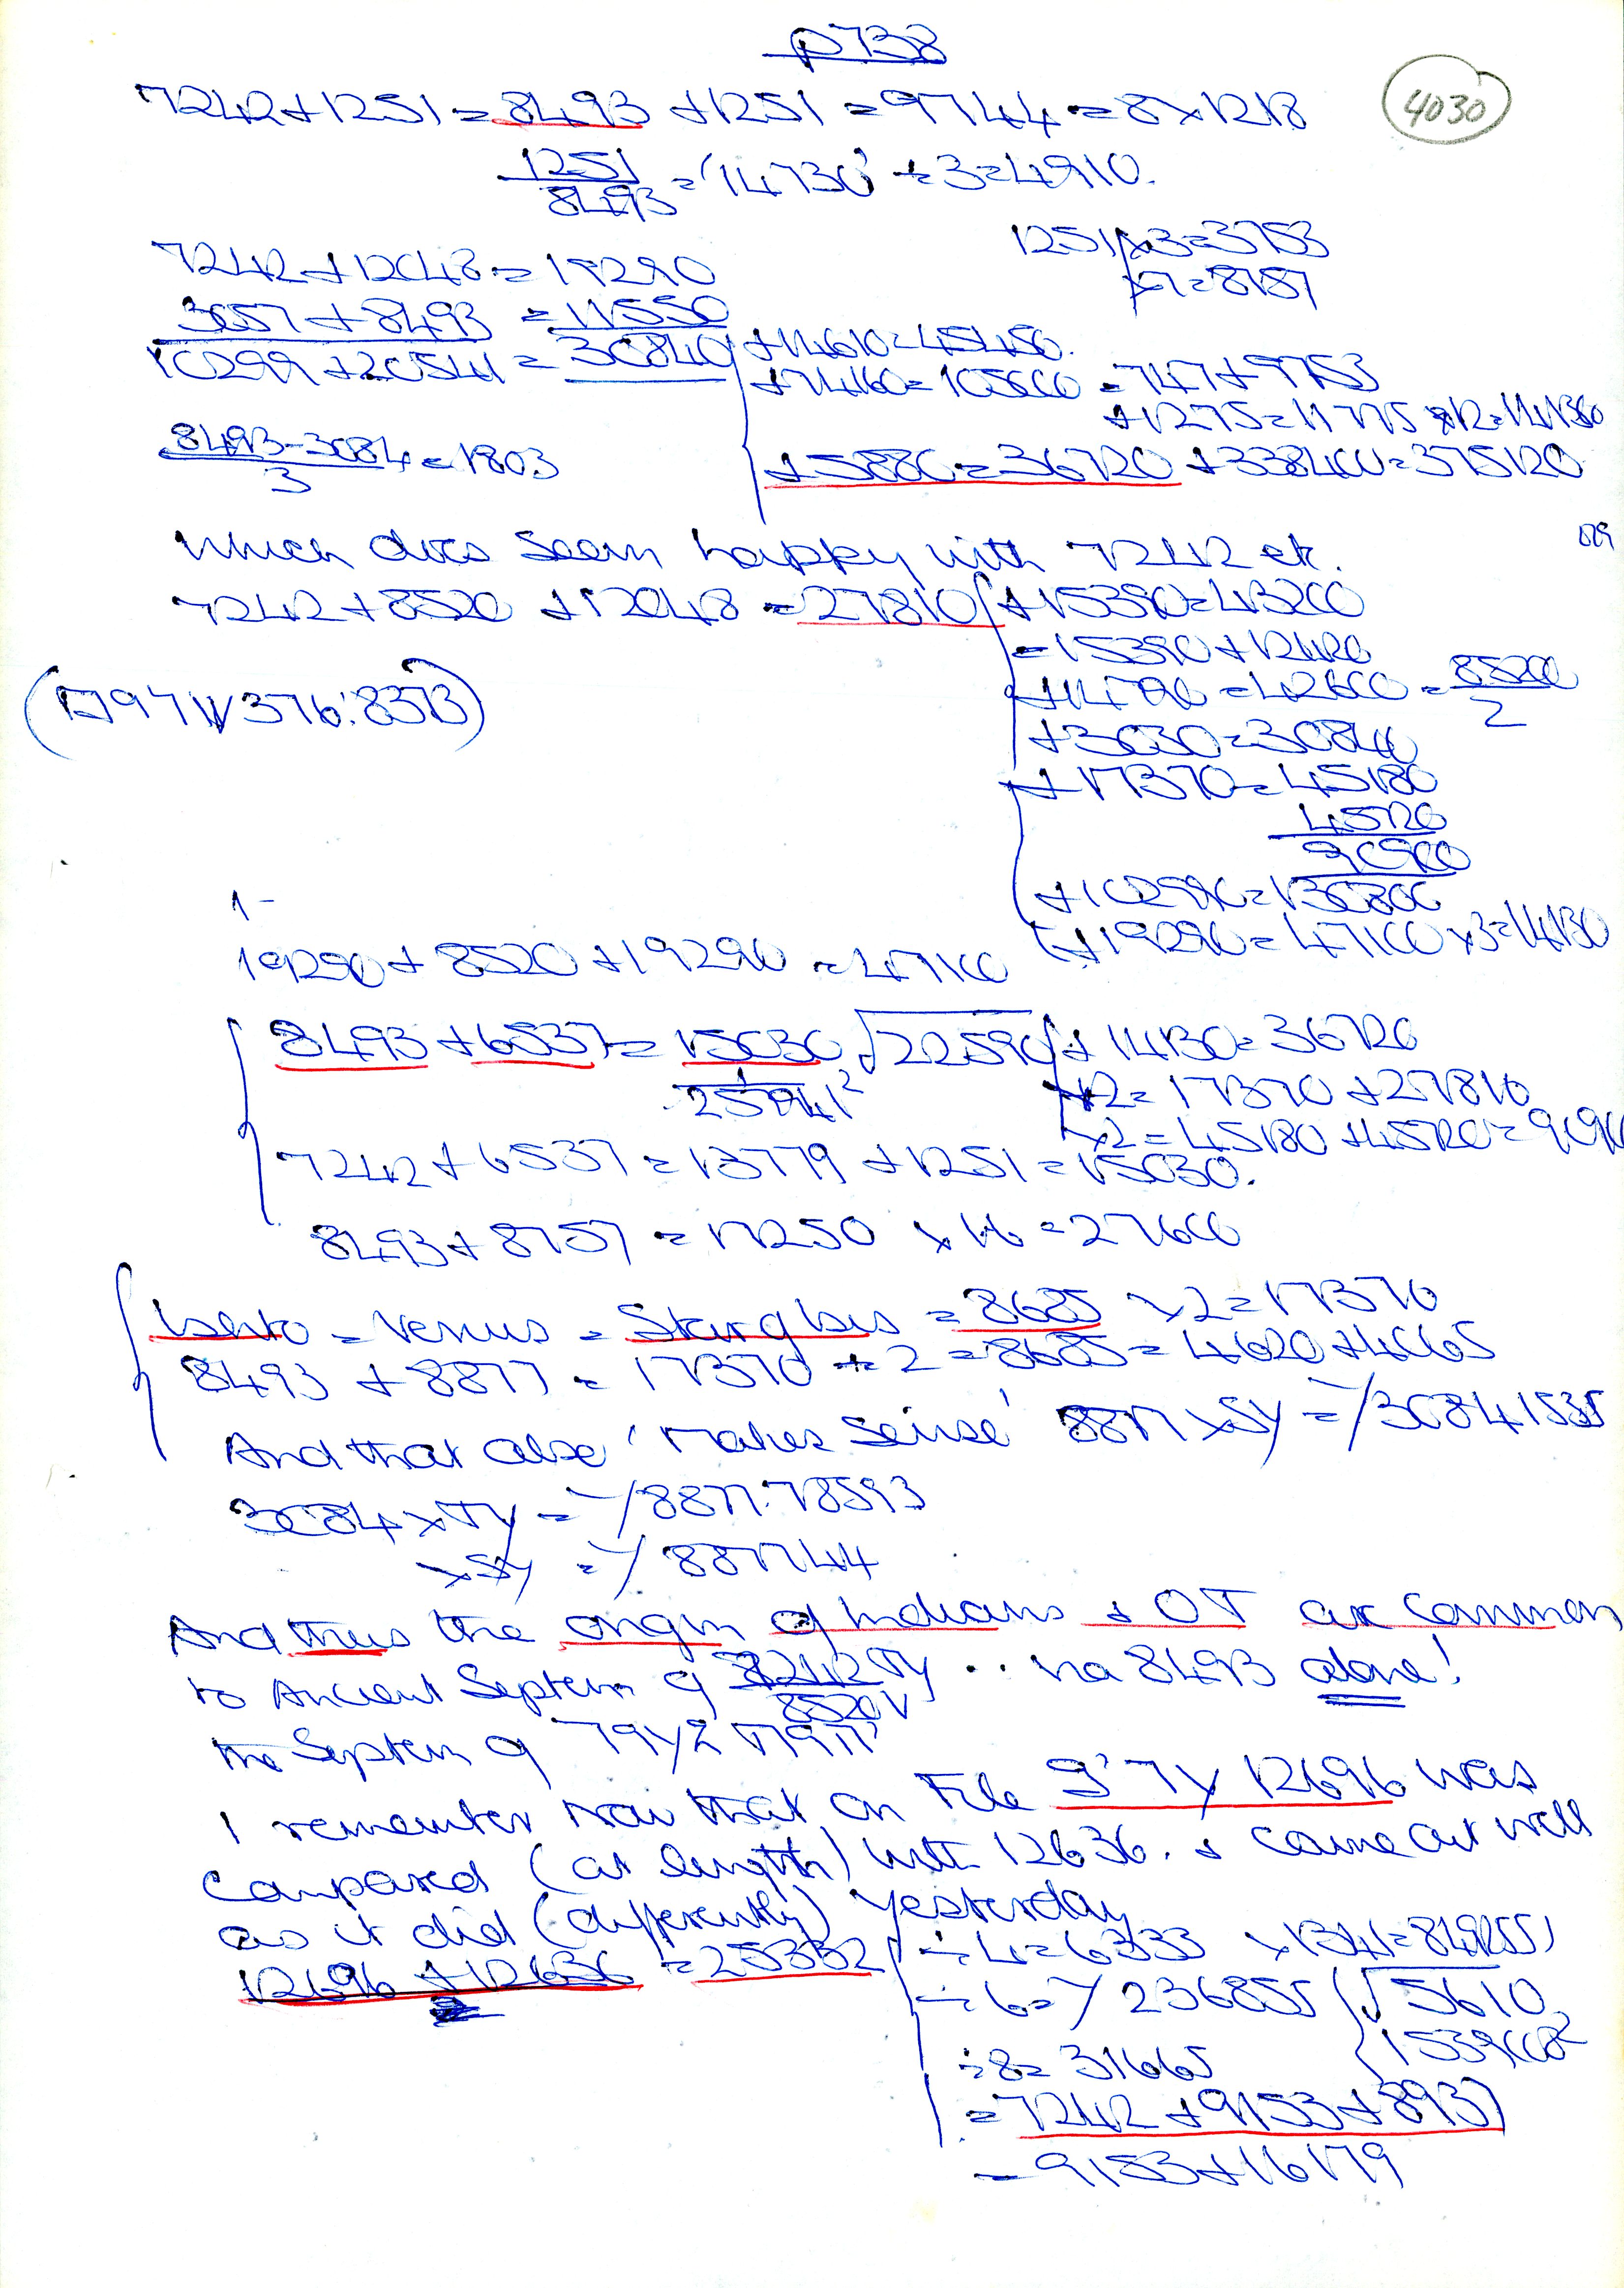 p738
4030
7242+1251=8493 +1251=9744=8×1218
1251/8493='14730' ÷3=4910.
1251×3=3753
×7=8757
7242+12048=19290
3057+8493=11550
10299+20541=30840
+14610=45450.
+74160=105000=
+1275=
+5880=36720 +338400=375120
8493-3084/3=1803
Which does seem happy with 7242 etc.
7242+8520+12048=27810
+15390=43200
=15390+12420
+14790=42600=85200/2
+3030=30840
+17370=45180
45720
90900
+102990=130800
+19290=47100×3=14130
19290+8520+19290=47100
8493+6537=15030 √22590
+14130=36720
÷2= 17370+27810
×2=45180+45720=
7242+6537=13779+1251=15030.
8493+8757=17250 ×16=27600
=Venus= =8685 ×2=17370
8493+8877=17370÷2=8685=4620+4065
And that also 'makes sense' 8877×SY=-/30841535
3084×TY=-/8877.78593
×SY=-/887744
And thus the origin of Indians & OT are common
to Ancient System of 8242TY/8520V .. via 8493 alone!
the System of
I remember now that on File 12696 was
compared (at length) with 12636. & came out well
as it did (differently) yesterday
12696+12636=25332
÷4=6333 ×1341=849255)
÷6=-/236855 (√5610
÷8=31665
=7242+9153+8937
=9153+16179